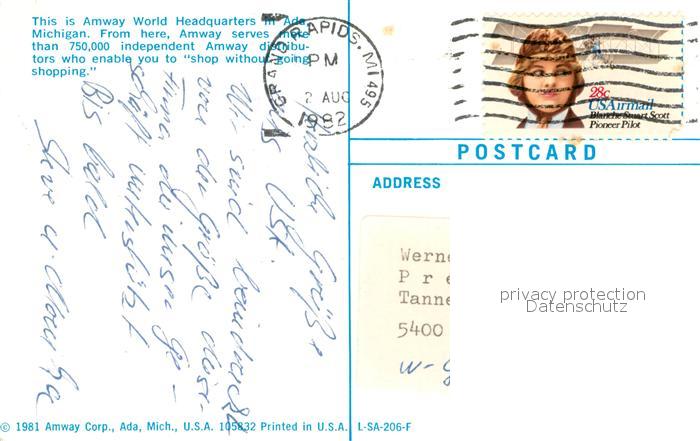 This is Amway World Headquarters in Ada,
Michigan. From here, Amway serves more
than 750,000 independent Amway distribu-
tors who enable you to "shop without going
shopping."
GRAND RAPIDS, MI 495
PM
2 AUG
1982
28c
USAirmail
Blanche Stuart Scott
Pioneer Pilot
POSTCARD
ADDRESS
Wern
Pre
Tanne
5400
W-
privacy protection
Datenschutz
Grüße
aus USA.
Wir sind
von der Größe dieser
Firma die unser
unterstützt
Bis bald
© 1981 Amway Corp., Ada, Mich., U.S.A. 105832 Printed in U.S.A. L-SA-206-F